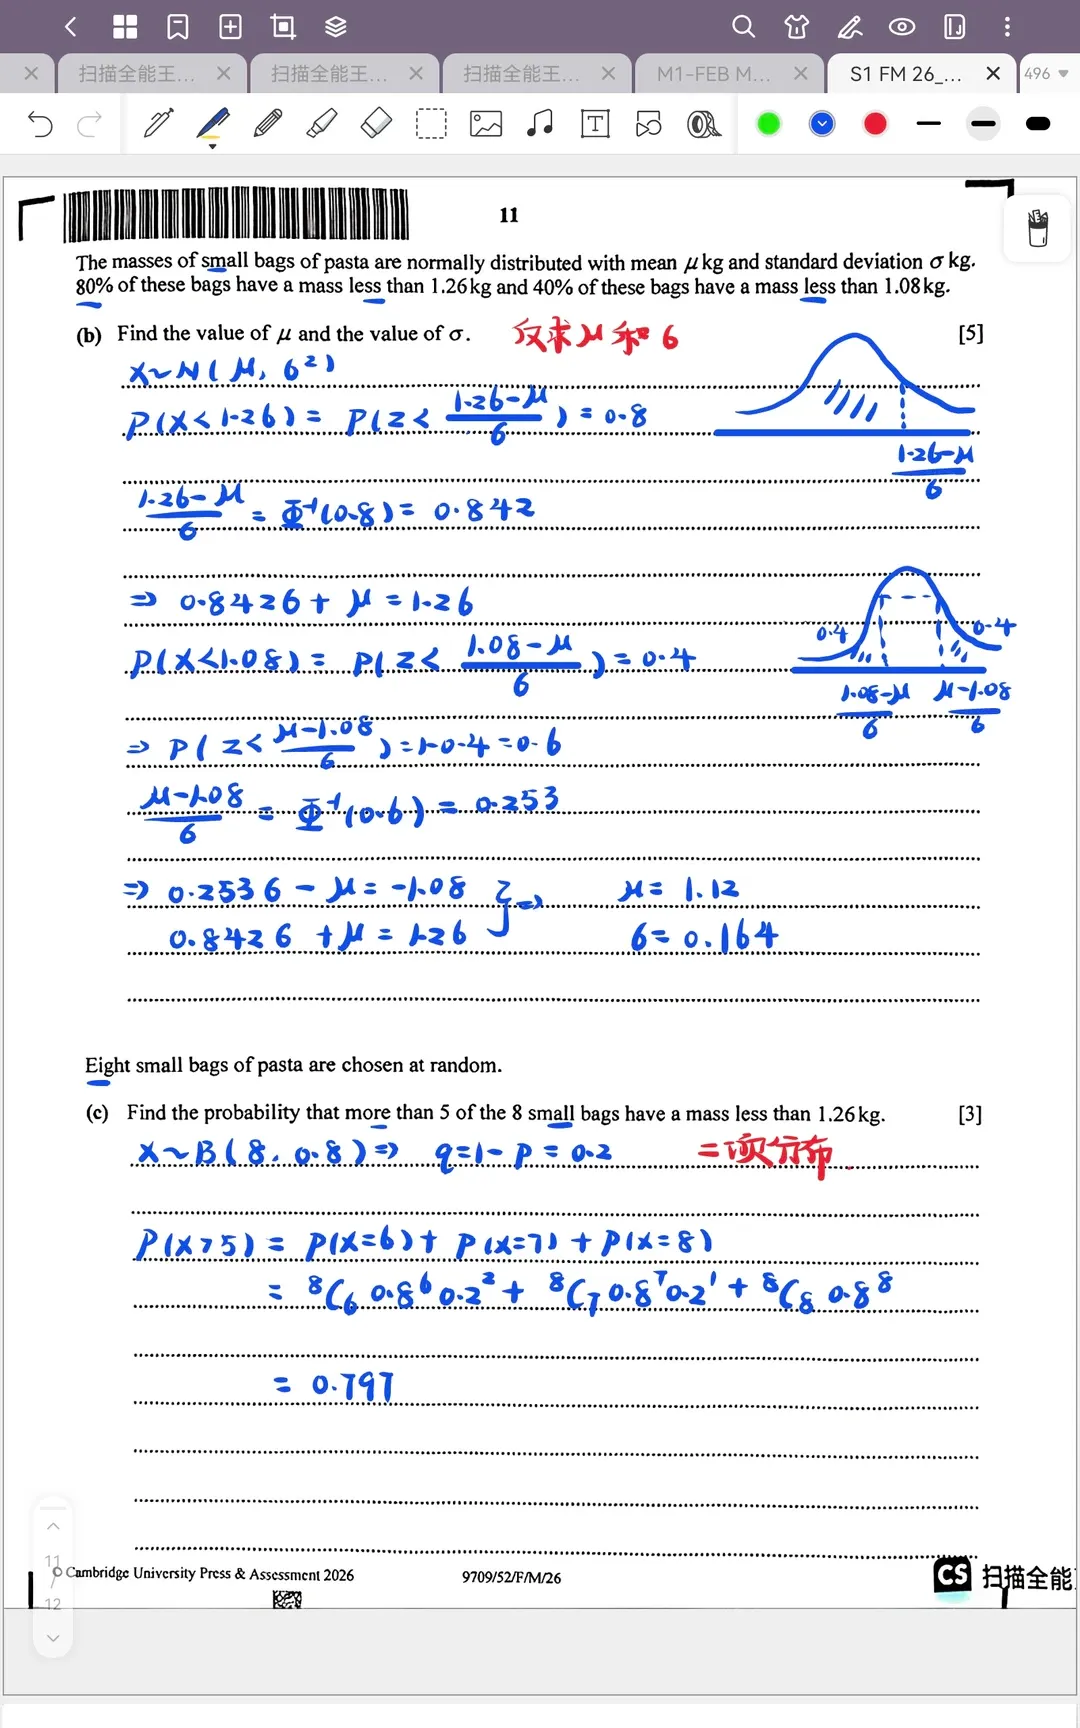 扫描全能王...
扫描全能王...
扫描全能王...
M1-FEB M...
S1 FM 26_...
496
11
The masses of small bags of pasta are normally distributed with mean μ kg and standard deviation σ kg.
80% of these bags have a mass less than 1.26 kg and 40% of these bags have a mass less than 1.08 kg.
(b) Find the value of μ and the value of σ. 反求 μ 和 σ [5]
X~N(μ, σ²)
P(X<1.26) = P(Z< (1.26-μ)/σ ) = 0.8
(1.26-μ)/σ
(1.26-μ)/σ = Φ⁻¹(0.8) = 0.842
⇒ 0.842σ + μ = 1.26
0.4 0.4
P(X<1.08) = P(Z< (1.08-μ)/σ ) = 0.4
(1.08-μ)/σ (μ-1.08)/σ
⇒ P( Z< (μ-1.08)/σ ) = 1-0.4 = 0.6
(μ-1.08)/σ = Φ⁻¹(0.6) = 0.253
⇒ 0.253σ - μ = -1.08 } ⇒ μ = 1.12
0.842σ + μ = 1.26 σ = 0.164
Eight small bags of pasta are chosen at random.
(c) Find the probability that more than 5 of the 8 small bags have a mass less than 1.26 kg. [3]
X~B(8, 0.8) ⇒ q=1-p=0.2 二项分布
P(X>5) = P(X=6) + P(X=7) + P(X=8)
= ⁸C₆ 0.8⁶ 0.2² + ⁸C₇ 0.8⁷ 0.2¹ + ⁸C₈ 0.8⁸
= 0.797
11
/
12
© Cambridge University Press & Assessment 2026
9709/52/F/M/26
CS 扫描全能